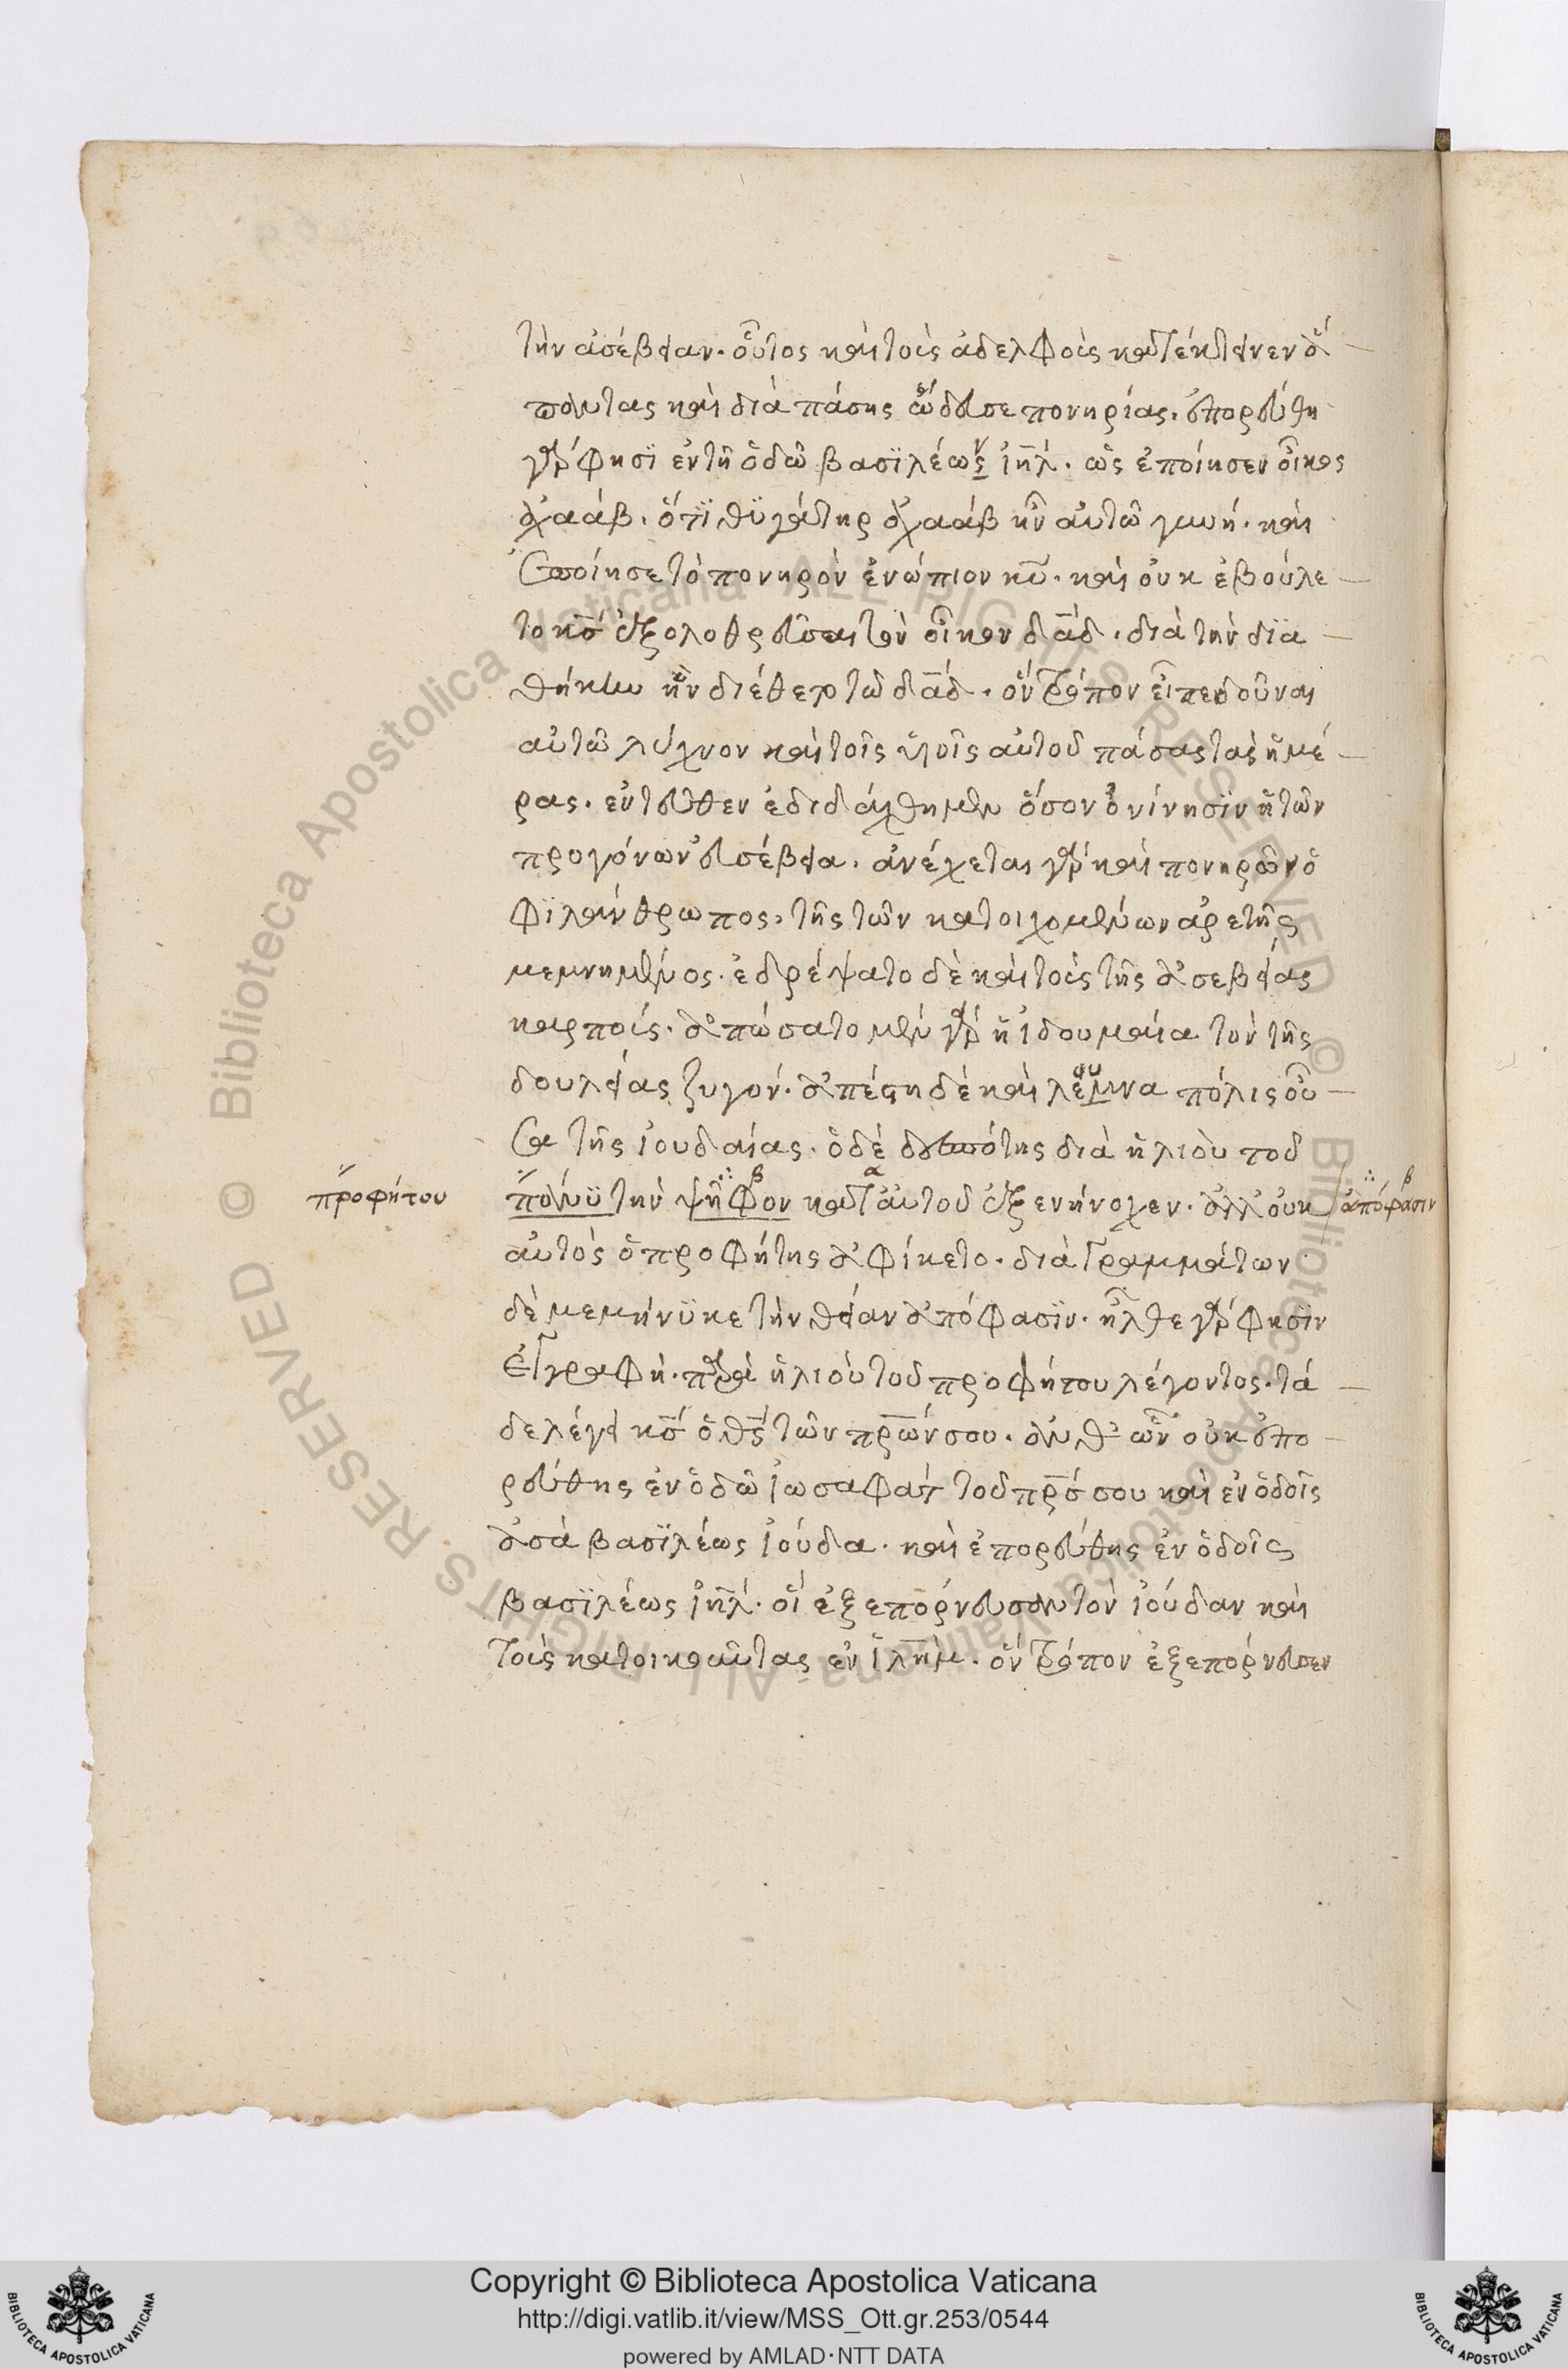 τὴν ἀσέβειαν. οὗτος καὶ τοὺς ἀδελφοὺς κατέκτεινεν ἅ
παντας καὶ διὰ πάσης ὥδευσε πονηρίας. ἐπορεύθη
γάρ φησϊ ἐν τῇ ὁδῶ βασϊλέως ἰη̅λ. ὡς ἐποίησεν οἶκος
ἀχαάβ. ὅτϊ θϋγάτηρ ἀχαάβ ἦν αὐτῶ γυνή. καὶ
ἐποίησε τὸ πονηρὸν ἐνώπιον κυ̅. καὶ οὐκ ἐβούλε
το κσ̅ ἐξολοθρεῦσαι τὸν οἶκον δα̅δ. διὰ τὴν δϊα
θήκην ἣν διέθετο τῶ δα̅δ. ὃν τρόπον εἶπε δοῦναι
αὐτῶ λύχνον καὶ τοῖς ὑιοῖς αὐτοῦ πάσας τὰς ἡμέ
ρας. ἐντεῦθεν ἐδιδάχθημεν ὅσον ὀνίνησϊν ἡ τῶν
προγόνων εὐσέβεια. ἀνέχεται γὰρ καὶ πονηρῶν ὁ
φϊλάνθρωπος. τῆς τῶν κατοιχομένων ἀρετῆς
μεμνημένος. ἐδρέψατο δὲ καὶ τοὺς τῆς ἀσεβείας
καρπούς. ἀπώσατο μὲν γὰρ ἡ ἰδουμαία τὸν τῆς
δουλείας ζυγόν. ἀπέστη δὲ καὶ λεμνα πόλις οὖ
σα τῆς ἰουδαίας. ὁ δὲ δεσπότης διὰ ἡλιοὺ τοῦ
προφήτου πάνυϋ τὴν ψῆφον κατ' αὐτοῦ ἐξενήνοχεν. ἀλλ' οὐκ ἀπόφασιν
αὐτὸς ὁ προφήτης ἀφίκετο. διὰ γραμμάτων
δὲ μεμήνϋκε τὴν θείαν ἀπόφασϊν. ἦλθε γάρ φησϊν
ἐγγραφὴ. παρὰ ἡλιοὺ τοῦ προφήτου λέγοντος. τά
δε λέγει κσ̅ ὁ θσ̅ τῶν πρ̅ων σου. ἀνθ' ὧν οὐκ ἐπο
ρεύθης ἐν ὁδῶ ἰωσαφὰτ τοῦ πρ̅σ σου καὶ ἐν ὁδοῖς
ἀσὰ βασϊλέως ἰούδα. καὶ ἐπορεύθης ἐν ὁδοῖς
βασϊλέως ἰη̅λ. οἳ ἐξεπόρνευσαν τὸν ἰούδαν καὶ
τοὺς κατοικοῦντας ἐν ἰλη̅μ. ὃν τρόπον ἐξεπόρνευσεν
Copyright © Biblioteca Apostolica Vaticana
http://digi.vatlib.it/view/MSS_Ott.gr.253/0544
powered by AMLAD·NTT DATA